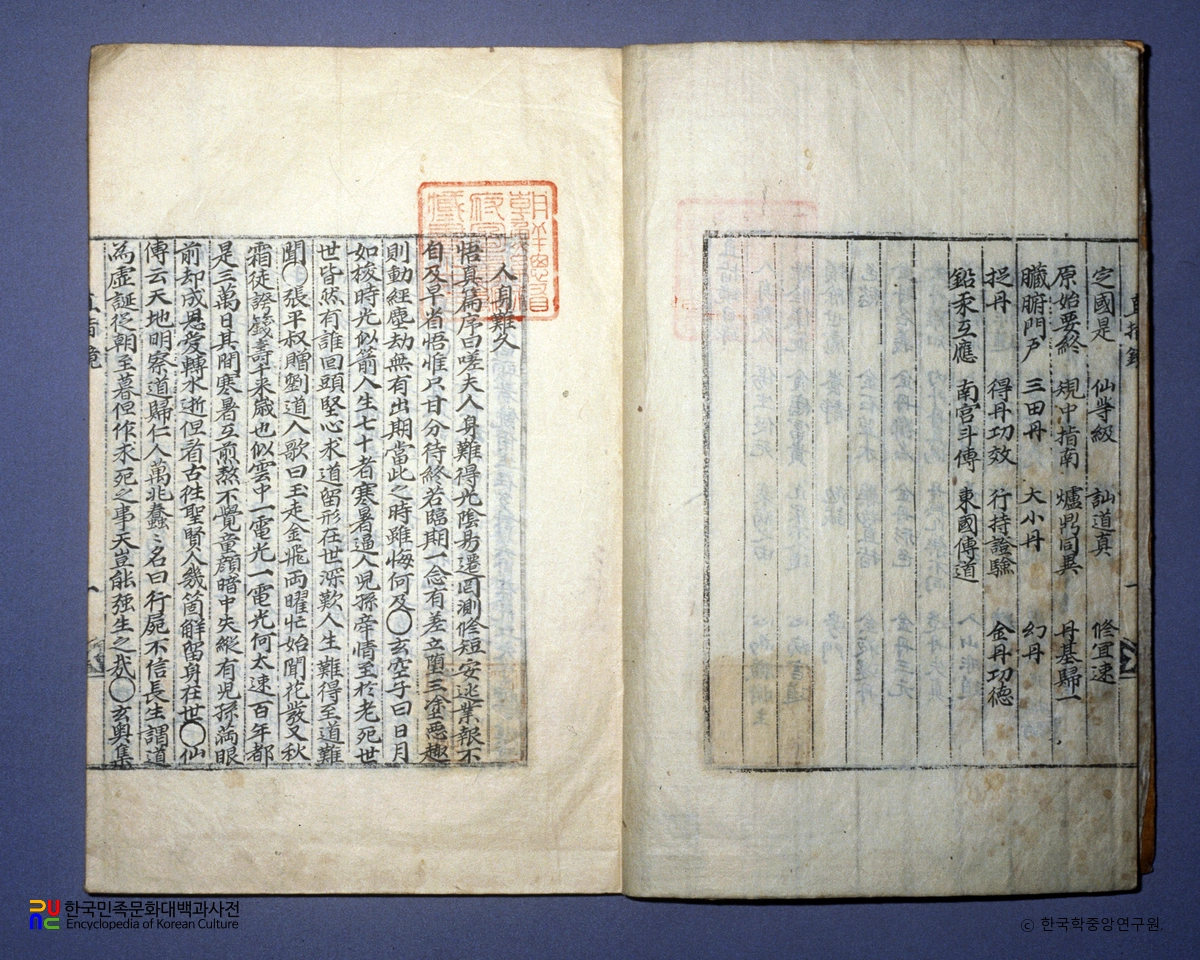 直指鏡
定國是 仙等級 訕道真 修宜速
原始要終 規中指南 爐鼎同異 丹基歸一
臟腑門戶 三田丹 大小丹 幻丹
捉丹 得丹功效 行持證驗 金丹功德
鉛汞互應 南宮斗傳 東國傳道
人身難久
悟真篇序曰嗟夫人身難得光陰易遷罔測修短安逃業報不
自及早省悟惟只甘分待終若臨期一念有差立墮三塗惡趣
則動經塵劫無有出期當此之時雖悔何及〇玄空子曰日月
如梭時光似箭人生七十者寒暑逼人児孫牽情至於老死世
世皆然有誰回頭堅心求道留形在世深歎人生難得至道難
聞〇張平叔贈劉道人歌曰玉走金飛兩曜忙始聞花發又秋
霜徒誇籛壽千来歲也似雲中一電光一電光何太速百年都
是三萬日其間寒暑互煎熬不覺童顏暗中失縱有児孫滿眼
前却成恩愛轉水逝但看古往聖賢人幾箇解留身在世〇仙
傳云天地明察道歸仁人萬兆蠢〻名曰行屍不信長生謂道
為虛誕從朝至暮但作求死之事天豈能强生之哉〇玄奧集
直指鏡
朝鮮
한국민족문화대백과사전
Encyclopedia of Korean Culture
© 한국학중앙연구원.